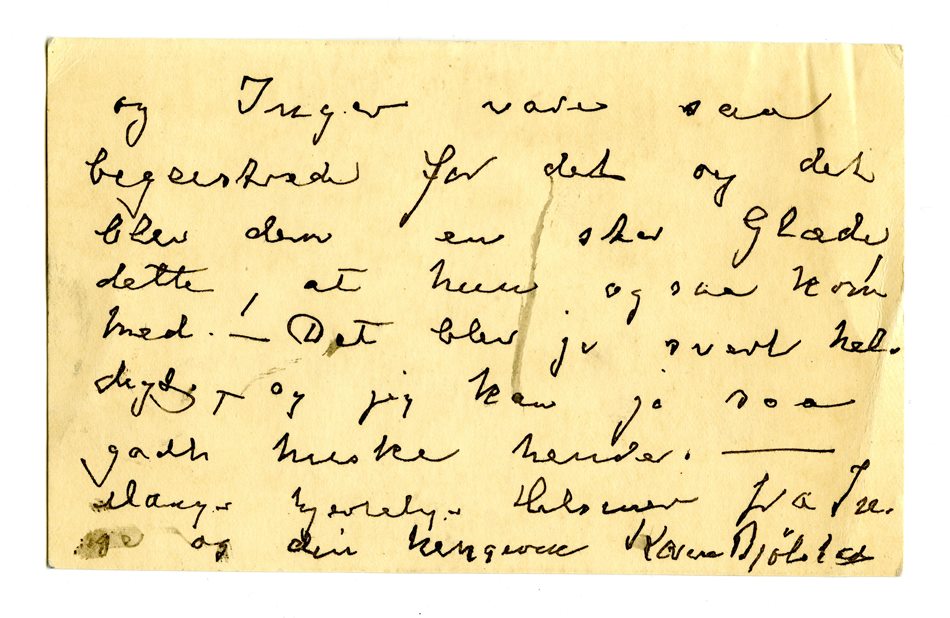 og Inger vare saa
begeistrede for det og det
blev dem en stor Glæde
dette, at hun ogsaa kom
med. — Det blev jo svært hel-
digt, — og jeg kan jo saa
godt huske hende. —
Mange hjertelige Hilsener fra In-
ge og din hengivne Karen Bjølstad